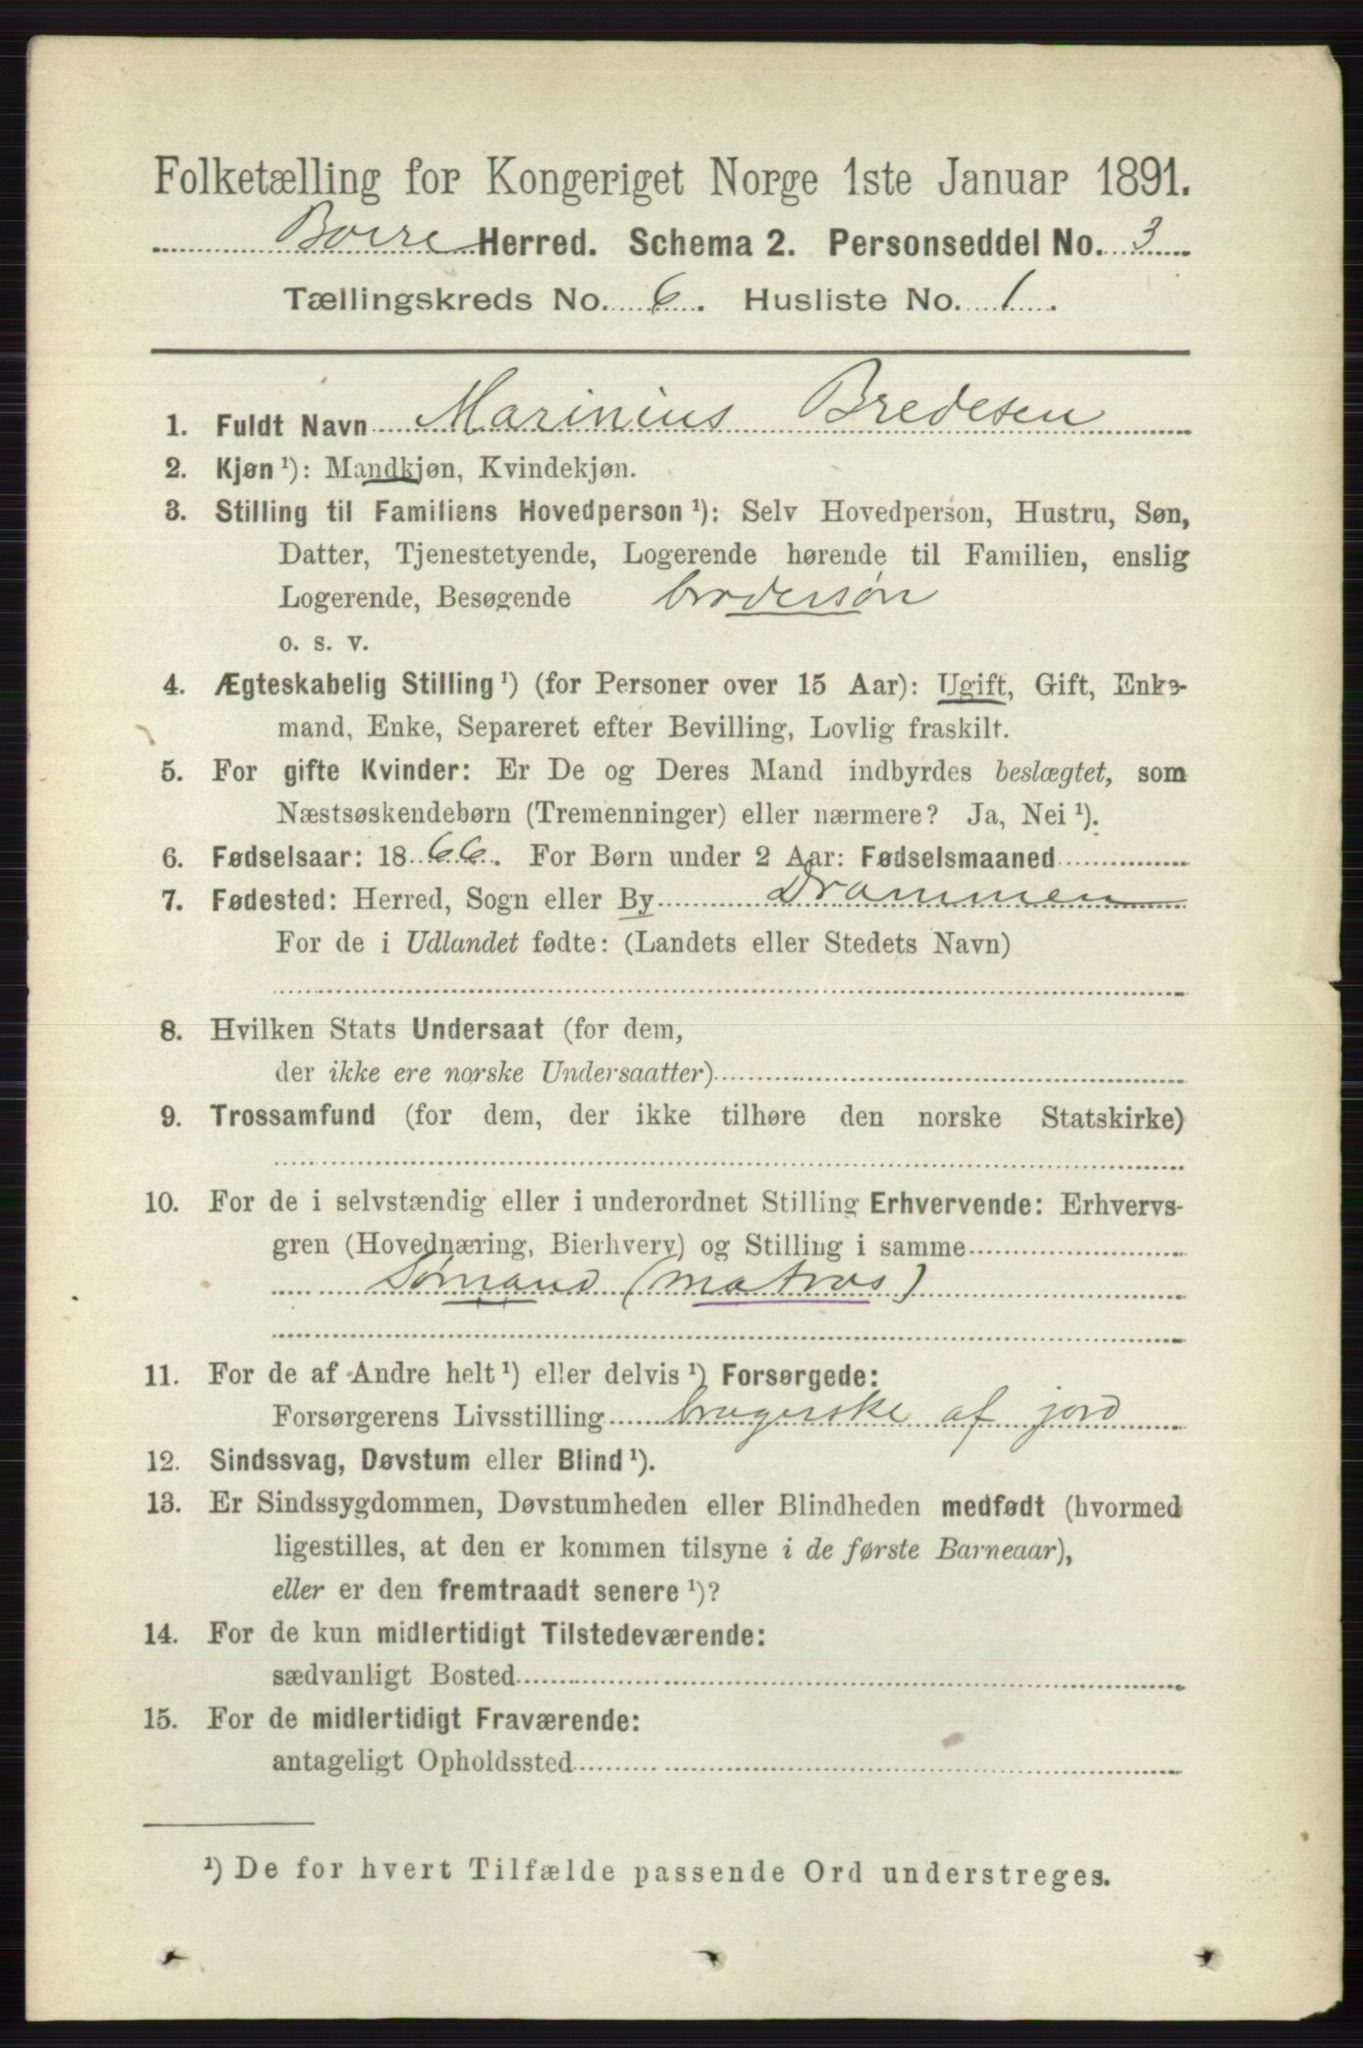 Folketælling for Kongeriget Norge 1ste Januar 1891.
Borre Herred. Schema 2. Personseddel No. 3
Tællingskreds No. 6. Husliste No. 1.
1. Fuldt Navn Marinius Bredesen
2. Kjøn ¹): Mandkjøn, Kvindekjøn.
3. Stilling til Familiens Hovedperson ¹): Selv Hovedperson, Hustru, Søn,
Datter, Tjenestetyende, Logerende hørende til Familien, enslig
Logerende, Besøgende brodersøn
o. s. v.
4. Ægteskabelig Stilling ¹) (for Personer over 15 Aar): Ugift, Gift, Enke-
mand, Enke, Separeret efter Bevilling, Lovlig fraskilt.
5. For gifte Kvinder: Er De og Deres Mand indbyrdes beslægtet, som
Næstsøskendebørn (Tremenninger) eller nærmere? Ja, Nei ¹).
6. Fødselsaar: 1866. For Børn under 2 Aar: Fødselsmaaned
7. Fødested: Herred, Sogn eller By Drammen
For de i Udlandet fødte: (Landets eller Stedets Navn)
8. Hvilken Stats Undersaat (for dem,
der ikke ere norske Undersaatter)
9. Trossamfund (for dem, der ikke tilhøre den norske Statskirke)
10. For de i selvstændig eller i underordnet Stilling Erhvervende: Erhvervs-
gren (Hovednæring, Bierhverv) og Stilling i samme
Sømand (matros)
11. For de af Andre helt ¹) eller delvis ¹) Forsørgede:
Forsørgerens Livsstilling brugerske af jord
12. Sindssvag, Døvstum eller Blind ¹).
13. Er Sindssygdommen, Døvstumheden eller Blindheden medfødt (hvormed
ligestilles, at den er kommen tilsyne i de første Barneaar),
eller er den fremtraadt senere ¹)?
14. For de kun midlertidigt Tilstedeværende:
sædvanligt Bosted
15. For de midlertidigt Fraværende:
antageligt Opholdssted
¹) De for hvert Tilfælde passende Ord understreges.